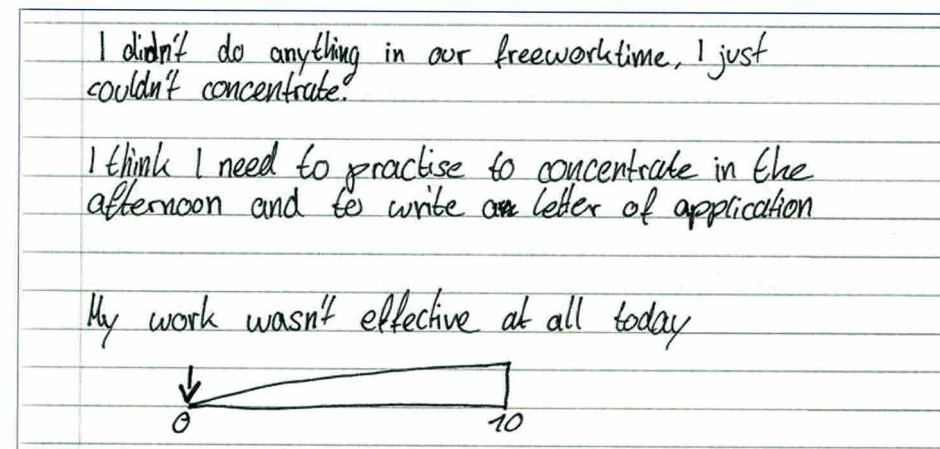 I didn't do anything in our freeworktime, I just
couldn't concentrate.
I think I need to practise to concentrate in the
afternoon and to write a letter of application
My work wasn't effective at all today
0 10